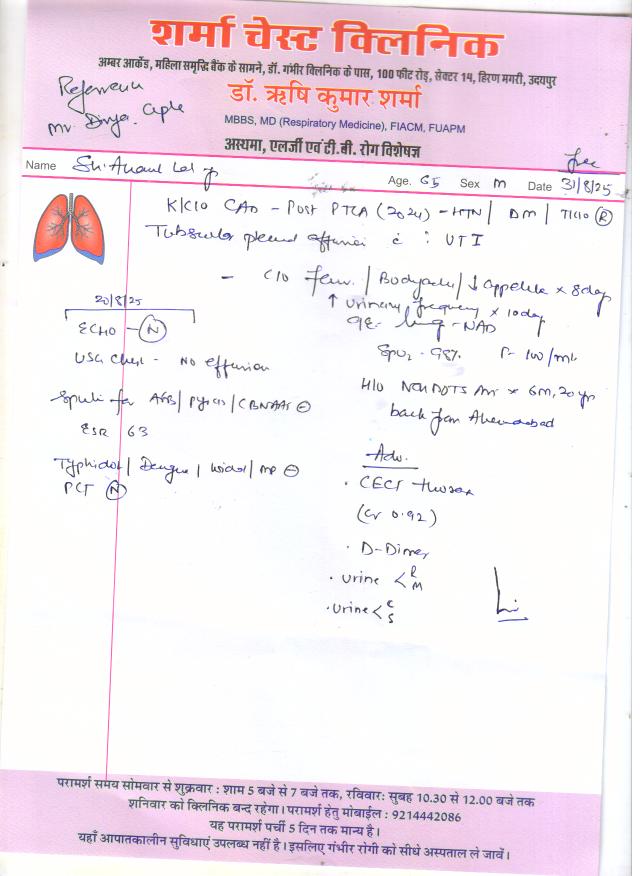 शर्मा चेस्ट क्लिनिक
अम्बर आर्केड, महिला समृद्धि बैंक के सामने, डॉ. गंभीर क्लिनिक के पास, 100 फीट रोड़, सेक्टर 14, हिरण मगरी, उदयपुर
डॉ. ऋषि कुमार शर्मा
MBBS, MD (Respiratory Medicine), FIACM, FUAPM
अस्थमा, एलर्जी एवं टी.बी. रोग विशेषज्ञ
Mr. Divya
free
Name Sh. Anand Lal Age. 65 Sex M Date 31/8/25
K/C/O CAD - Post PTCA (2024) - HTN / DM / T/C/O (R)
Tubercular pleural effusion c̄ : UTI
- C/O Fever / Bodyache / ↓ appetite × 8 day
↑ urinary frequency × 10 day
20/8/25
O/E - - NAD
ECHO - (N)
SpO2 - 98% P- 100/mt
USG Chest - No effusion
H/O 6M, 20 yr
back from Ahemdabad
Sputum for AFB / / CBNAAT ⊖
ESR 63
Typhidot / Dengue / Widal / MP ⊖
PCT (N)
Adv.
· CECT thorax
(Cr 0.92)
· D-Dimer
· Urine < R M
· Urine < C S
परामर्श समय सोमवार से शुक्रवार : शाम 5 बजे से 7 बजे तक, रविवार: सुबह 10.30 से 12.00 बजे तक
शनिवार को क्लिनिक बन्द रहेगा। परामर्श हेतु मोबाईल : 9214442086
यह परामर्श पर्ची 5 दिन तक मान्य है।
यहाँ आपातकालीन सुविधाएं उपलब्ध नहीं है। इसलिए गंभीर रोगी को सीधे अस्पताल ले जावें।